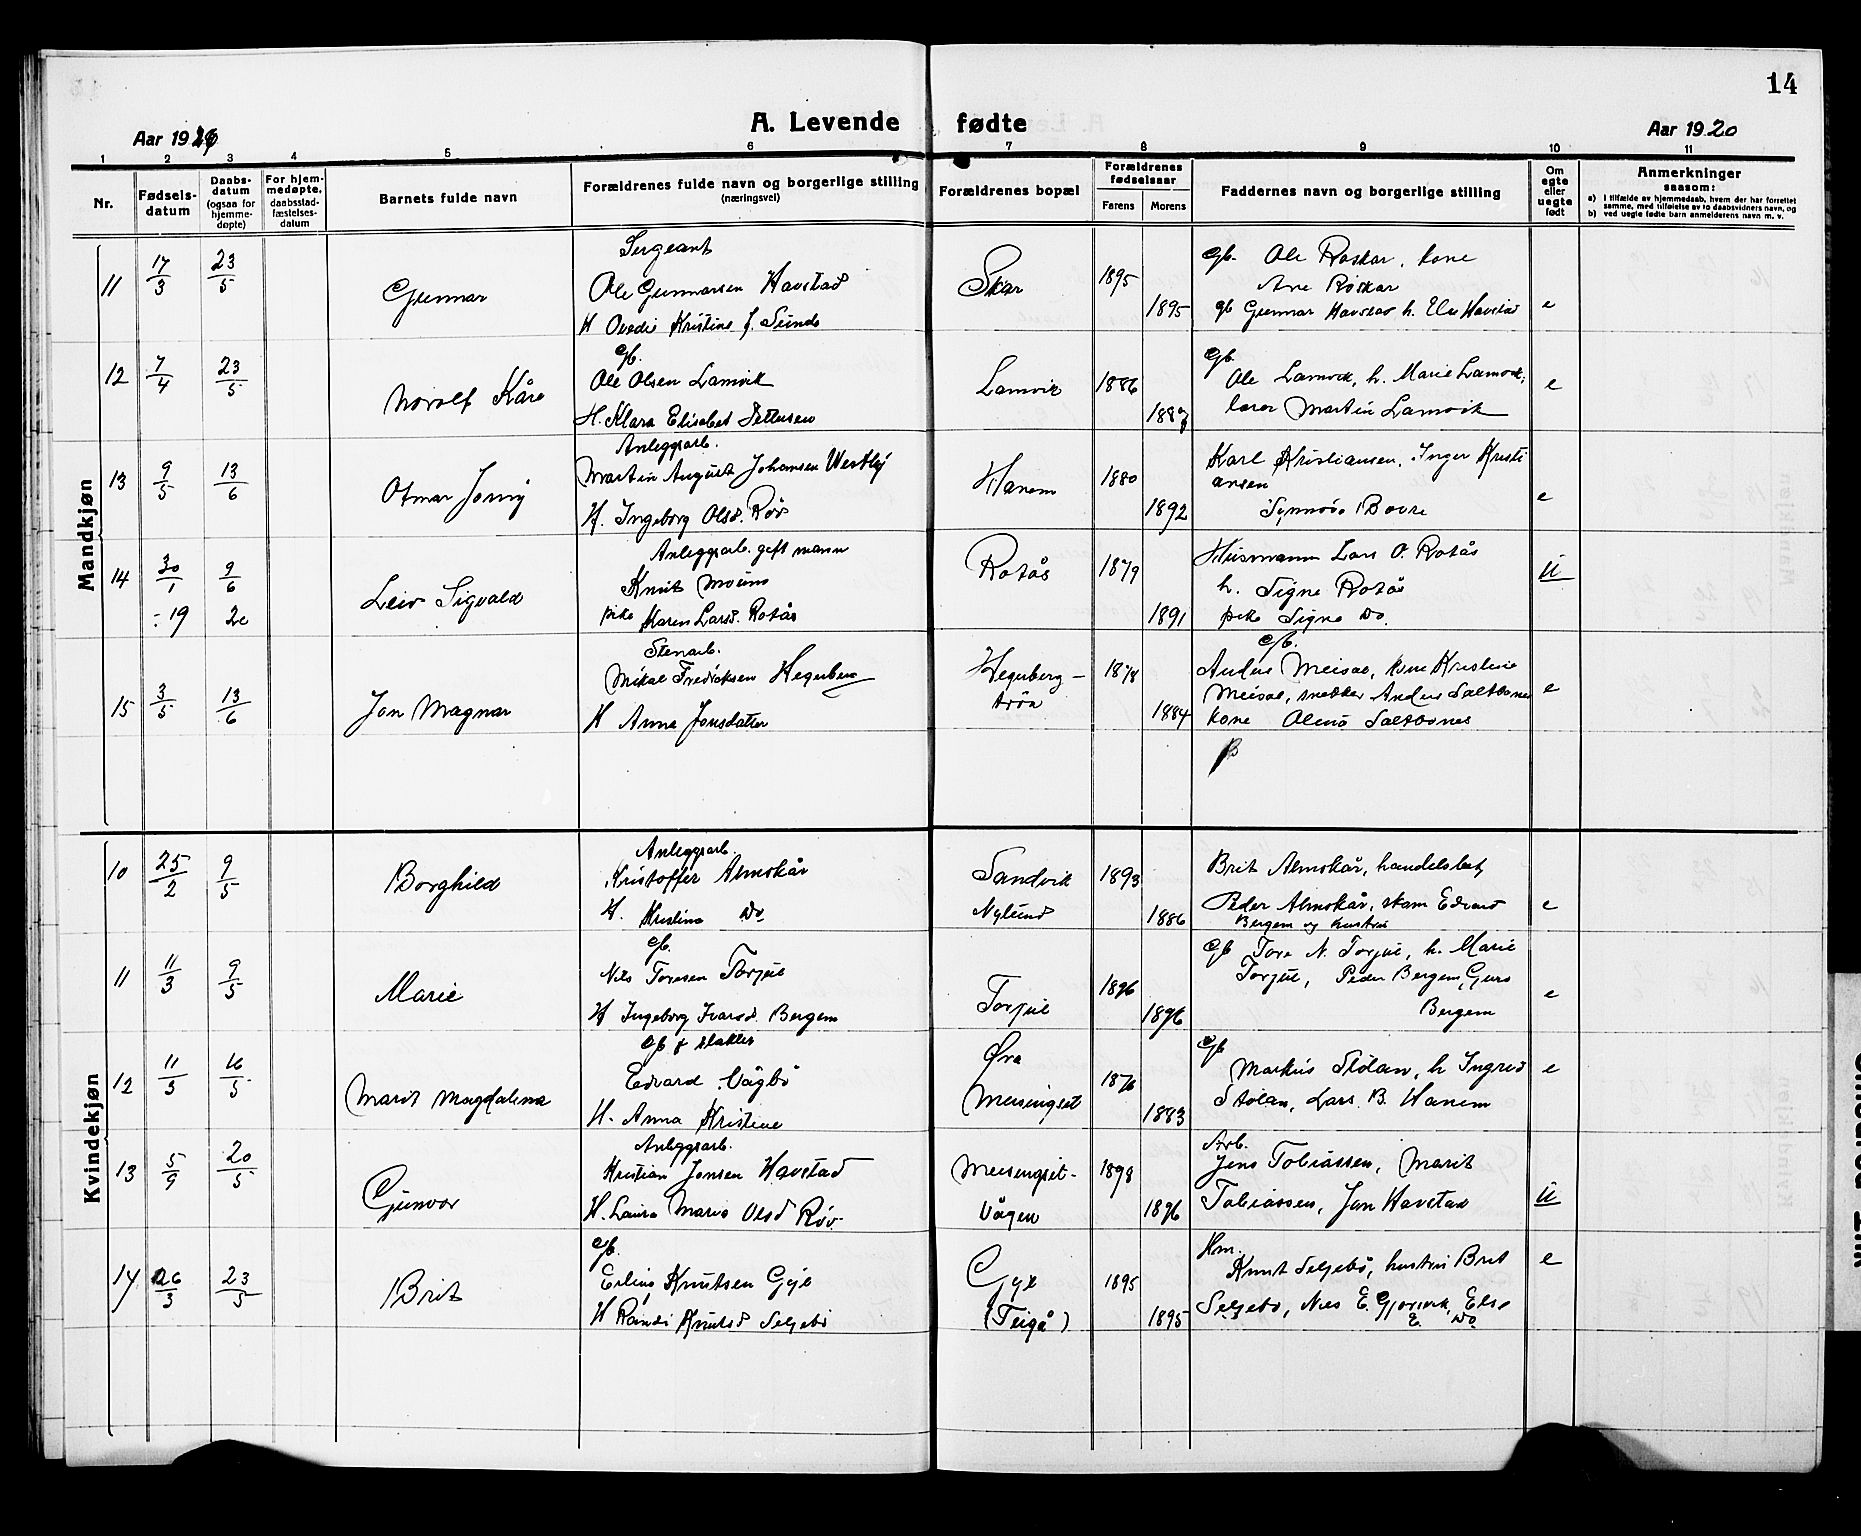 14
A. Levende fødte
Aar 1920
Aar 1920
1 2 3 4 5 6 7 8 9 10 11
Nr.
Fødsels-
datum
Daabs-
datum
(ogsaa for
hjemme-
døpte)
For hjem-
medøpte,
daabsstad-
fæstelses-
datum
Barnets fulde navn
Forældrenes fulde navn og borgerlige stilling
(næringsvei)
Forældrenes bopæl
Forældrenes
fødselsaar
Farens Morens
Faddernes navn og borgerlige stilling
Om
egte
eller
uegte
født
Anmerkninger
saasom:
a) I tilfælde av hjemmedaab, hvem der har forrettet
samme, med tilføielse av to daabsvidners navn, og
b) ved uegte fødte barn anmelderens navn m. v.
Mandkjøn
11 17/3 23/5 Gunnar
Sergeant
Ole Gunnarsen Havstad
H Kristine f. Sunde
Skar 1895 1895
gb. Ole Røskar, kone
Ane Røskar
gb Gunnar Havstad h. Havstad
e
12 7/4 23/5 Norolf Kåre
gb.
Ole Olsen Lamvik
H. Klara Elisabet Pettersen
Lamvik 1886
gb.
Ole Lamvik, h. Marie Lamvik,
lærer Martin Lamvik
e
13 9/5 13/6 Otmar
Anleggsarb.
Martin August Johansen Westby
H. Ingeborg Olsd. Røv
Hanem 1880 1892
Karl Kristiansen, Inger Kristi
ansen
Synnøve Bovre
e
14 30/1 9/6
-19 20
Leiv Sigvald
Anleggsarb. gift mann
Knut Moino
pike Karen Larsd. Rotås
Rotås 1879 1891
Husmann Lars O. Rotås
h. Signe Rotås
pike Signe Do.
U
15 3/5 13/6 Jon Magnar
Stenarb.
Mikal Fredriksen Hegerberg
H Anna Jonsdatter
Hegerberg-
trøa
1878 1884
gb.
Anders Meisal, kone Kristine
Meisal, snekker Anders Saltbones
kone Olena Saltbones
e
Kvindekjøn
10 25/2 9/5 Borghild
Anleggsarb.
Kristoffer Almskår
H. Kristine Do.
Sandvik
Nylund
1893 1886
Brit Almskår, handelsbet
Peder Almskår, skom Edvard
Bergem og hustru
e
11 11/3 9/5 Marie
gb.
Nils Toresen Torjul
H Ingeborg Ivarsd. Bergem
Torjul 1896 1896
gb Tore N. Torjul, h. Marie
Torjul, Peder Bergem, Guro
Bergem
e
12 11/3 16/5 Marit Magdalena
gb & slakter
Edvard Vågbø
H. Anna Kristine
Øra
Meisingset
1876 1883
gb
Markus Stølan, h Ingrid
Stølan, Lars B. Hanem
e
13 5/9 20/5 Gunvor
Anleggsarb.
Kristian Jonsen Havstad
H. Laura Marie Olsd Røv
Meisingset-
Vågen
1898 1896
Arb.
Jens Tobiassen, Marit
Tobiassen, Jon Havstad
U
14 26/3 23/5 Brit
gb.
Erling Knutsen Gyl
H Randi Knutsd Seljebø
Gyl
(Teigå)
1895 1895
Hm.
Knut Seljebø, hustru Brit
Seljebø, Nils E. Gjørvik, Else
E. Do.
e